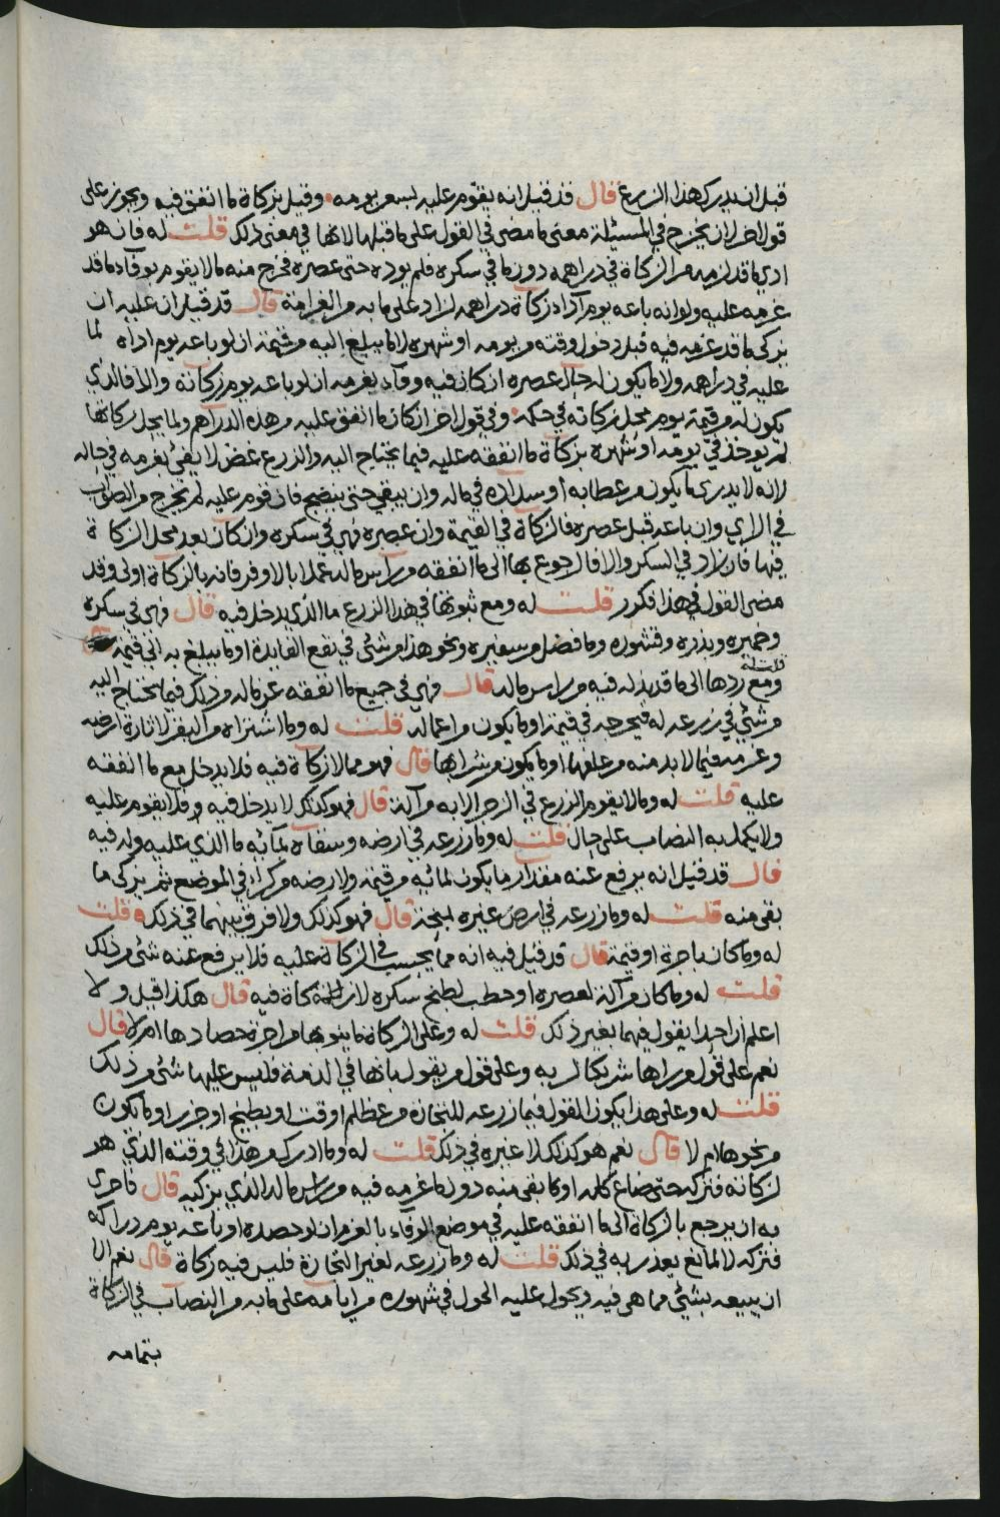 قبل ان يدرك هذا الزرع قال قد قيل انه يقوم عليه بسعر يومه وقيل يزكاة ما انفق فيه ويجوز على
قول اخر لان يخرج في المسئلة معنى ما مضى في القول على ما قبلها لانها في معنى ذلك قلت له فان هو
ادى ما قد لزمه من الزكاة في دراهمه دون ما في سكره فلم يوده حتى عصره فخرج منه ما لا يقوم بوفاء ما قد
غرمه عليه ولو انه باعه يوم اراد زكاة دراهمه لزاد على ما به من الغرامة قال قد قيل ان عليه ان
يزكي ما قد غرمه فيه قبل دخول وقته من يومه او شهره الا ما يبلغ اليه من قيمته ان لو باعه يوم اداه لما
عليه في دراهمه ولا ما يكون له حال عصره ان كان فيه وفاء بغرمه ان لو باعه يوم زكاته والا فالذي
يكون له من قيمته يوم محل زكاته في حكمه وفي قول اخر ان كان ما انفق عليه من هذه الدراهم ولما يحل زكاتها
لم يوخذ في يومه او شهره بزكاة ما انفقه عليه فيما يحتاج اليه والزرع غض لا يفي بغرمه في حاله
لانه لا يدري ما يكون من عطابه او سداده في ماله وان يبقى حتى ينضج فان قوم عليه لم يخرج من الصواب
في الراي وان باعه قبل عصره فالزكاة في القيمة وان عصره فهي في سكره وان كان بعد محل الزكاة
فيها فان زاد في السكر والا فالرجوع بها الى ما انفقه من راس ماله عملا بالاوفر فانه بالزكاة اولى وقد
مضى القول في هذا فكرر قلت له ومع ثبوتها في هذا الزرع ما الذي يدخل فيه قال فهي في سكره
وخميره وبذره وقشوره وما فضل من سفيره ونحو هذا من شئ في نفع الفايدة او ما يبلغ به الى قيمة
قلت له ومع ردها الى ما قد بذله فيه من راس ماله قال فهي في جميع ما انفقه عن ماله من ذلك فيما يحتاج اليه
من شئ في زرعه له فيخرجه في قيمة او ما يكون من اعماله قلت له وما اشتراه من البقر لاثارة ارضه
وغرمه فيما لا بد منه من علفها او ما يكون من شرابها قال فهو مما لا زكاة فيه فلا يدخل مع ما انفقه
عليه قلت له وما لا يقوم الزرع في الزجر الا به من آلة قال فهو كذلك لا يدخل فيه ولا يقوم عليه
ولا يكمل به النصاب على حال قلت له وما زرعه في ارضه وسقاه بمائه ما الذي عليه وله فيه
قال قد قيل انه يرفع عنه مقدار ما يكون لمائه من قيمة ولارضه من كراء في الموضع ثم يزكي ما
بقي منه قلت له وما زرعه في ارض غيره لمنحة قال فهو كذلك ولا فرق بينهما في ذلك قلت
له وما كان باجرة او قيمة قال قد قيل فيه انه مما يحسب في الزكاة عليه فلا يرفع عنه شئ من ذلك
قلت له وما كان من آلة لعصره او حطب لطبخ سكره لا زكاة فيه قال هكذا قيل ولا
اعلم ان احدا يقول فيهما بغير ذلك قلت له وعلى الزكاة ما ينوبها من اجرة حصادها ام لا قال
نعم على قول من راها شريكا لربه وعلى قول من يقول بانها في الذمة فليس عليها شئ من ذلك
قلت له وعلى هذا يكون القول فيما زرعه للتجارة من عظلم او قت او بطيخ او جزر او ما يكون
من نحوها ام لا قال نعم هو كذلك لا غيره في ذلك قلت له وما ادرك من هذا في وقته الذي هو
لزكاته فتركه حتى ضاع كله او ما بقي منه دون ما غرمه فيه من راس ماله الذي يزكيه قال فاحرى
به ان يرجع بالزكاة الى ما انفقه عليه في موضع الوفاء بالغرم ان لو حصده او باعه يوم دراكه
فتركه لا لمانع يعذر به في ذلك قلت له وما زرعه لغير التجارة فليس فيه زكاة قال نعم الا
ان يبيعه بشئ مما هي فيه ويحول عليه الحول في شهوره من ايامه على ما به من النصاب في الزكاة
بتمامه